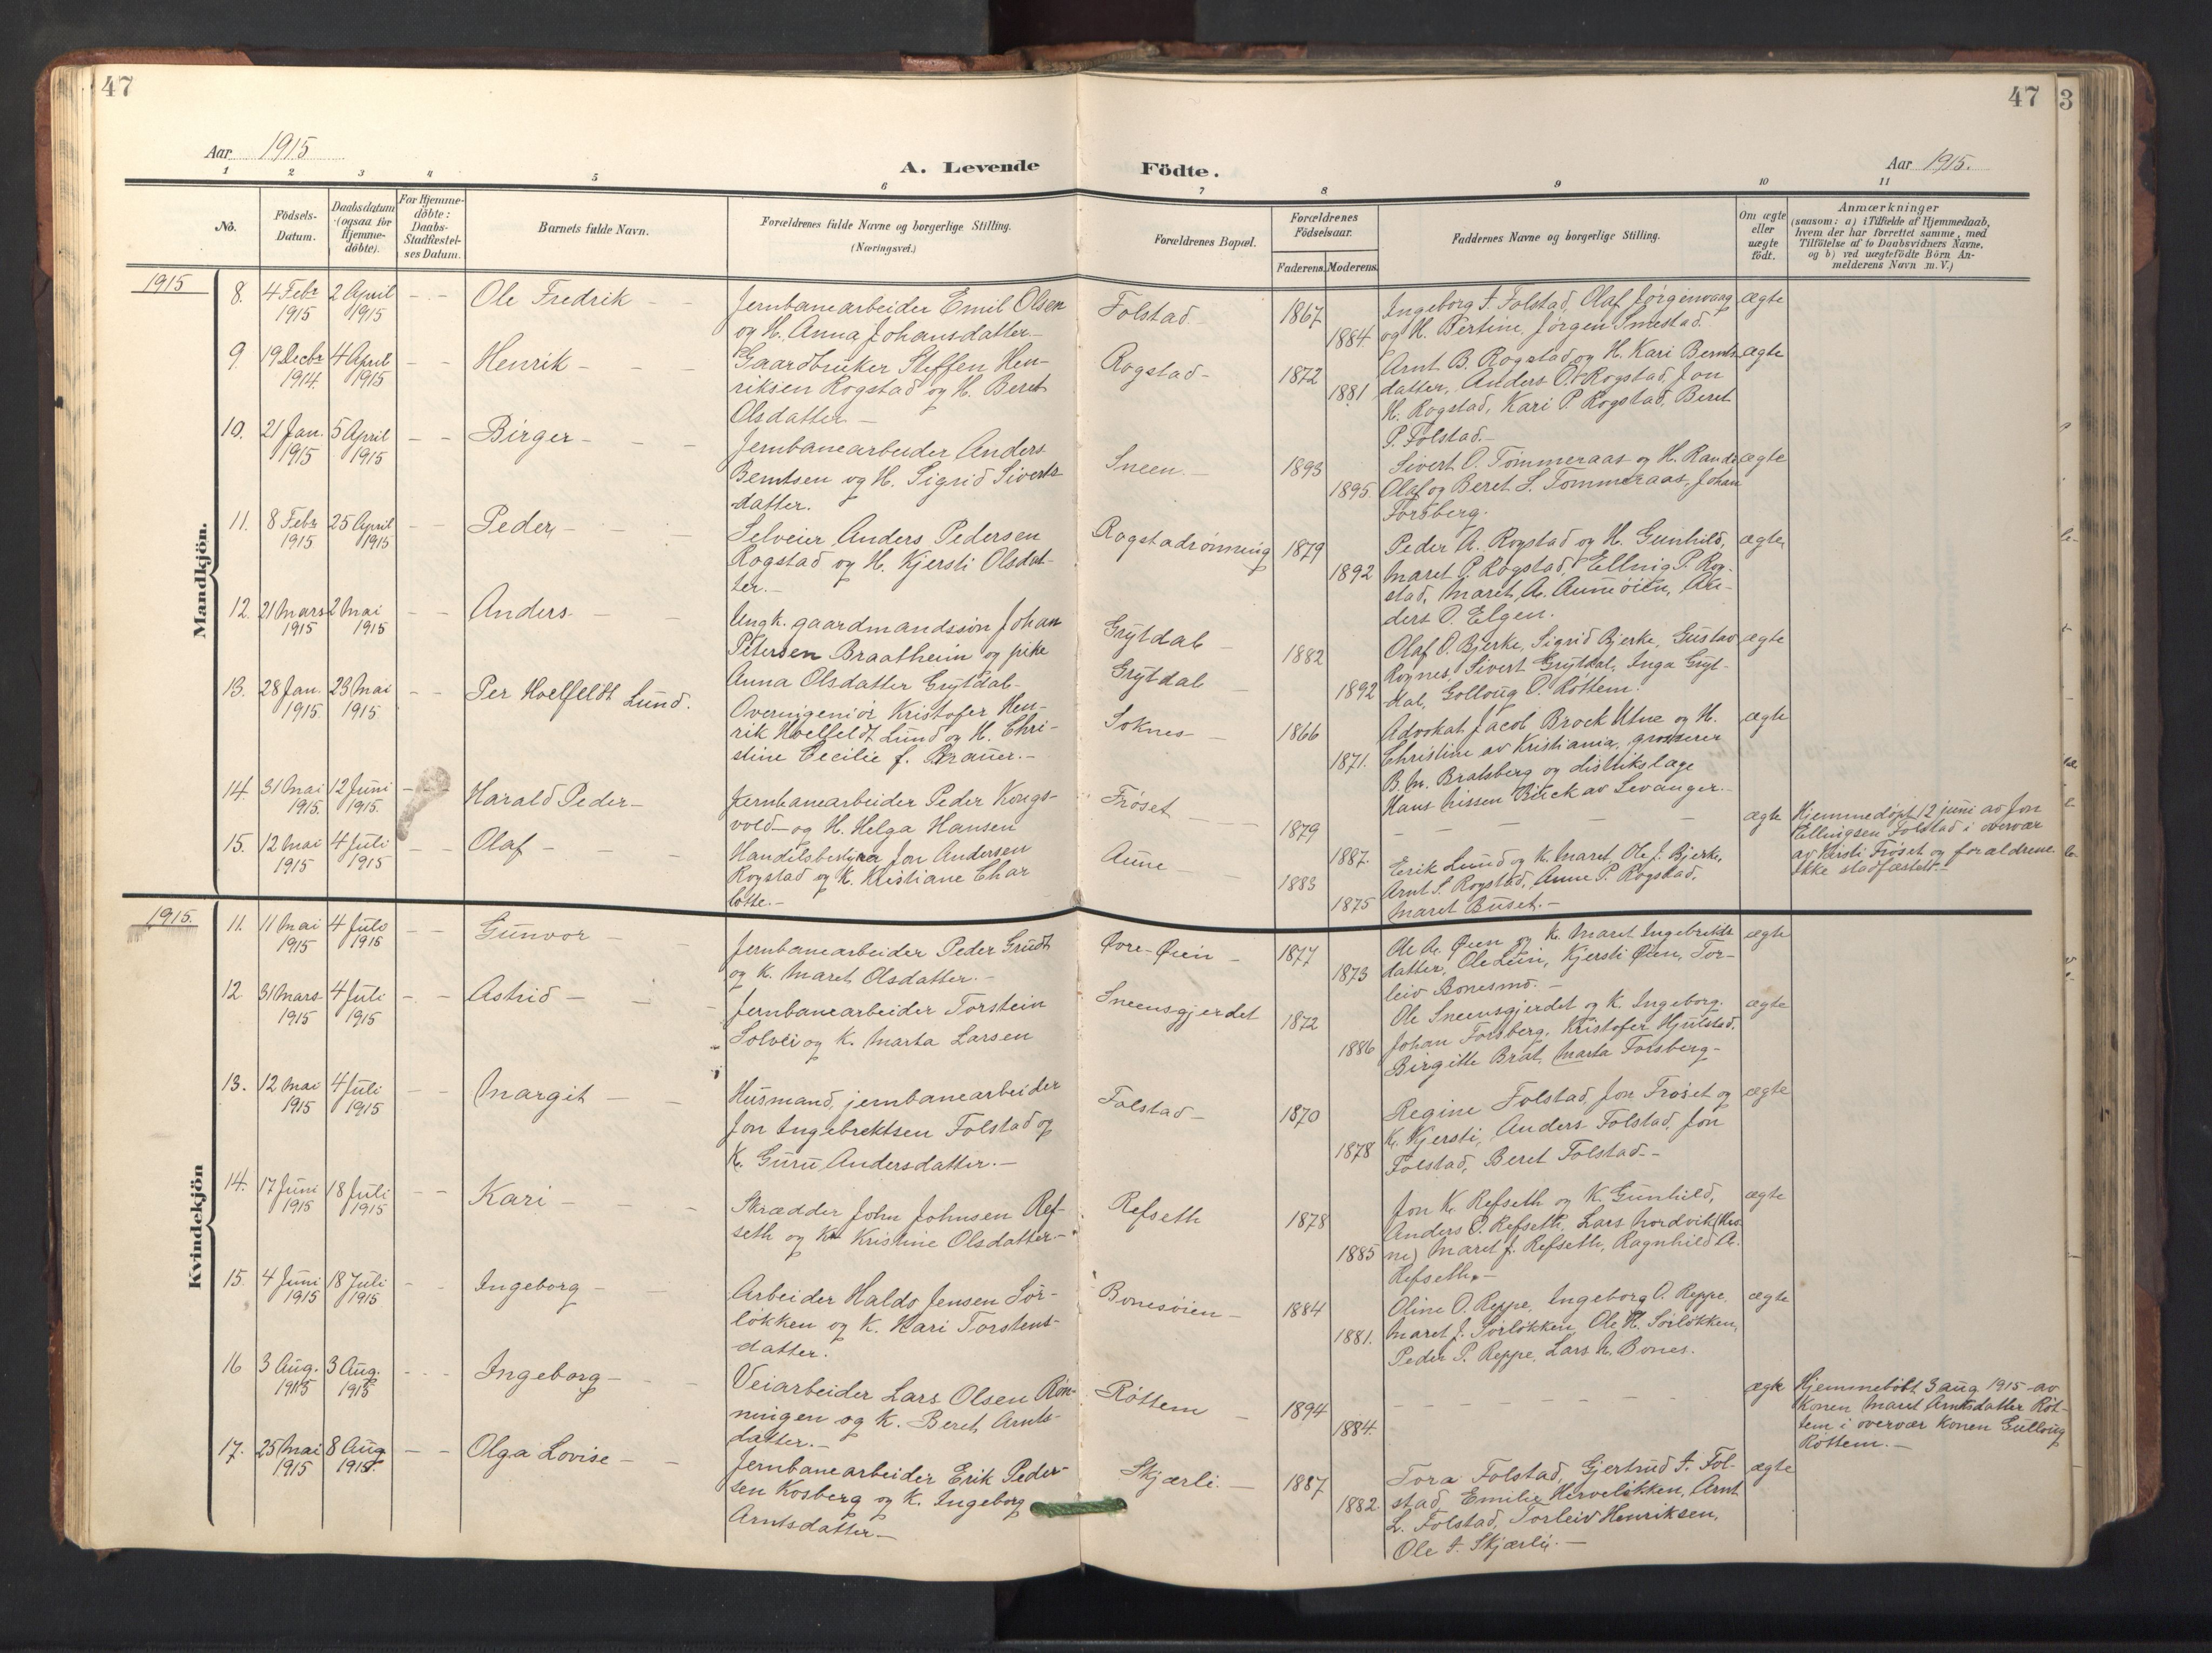 47
47
3
Aar 1915
A. Levende
Födte.
Aar 1915.
1 2 3 4 5 6 7 8 9 10 11
No.
Födsels-
Datum.
Daabsdatum
(ogsaa for
Hjemme-
döbte).
For Hjemme-
döbte:
Daabs-
Stadfæstel-
ses Datum.
Barnets fulde Navn.
Forældrenes fulde Navne og borgerlige Stilling.
(Næringsvei.)
Forældrenes Bopæl.
Forældrenes
Födselsaar.
Faderens. Moderens.
Faddernes Navne og borgerlige Stilling.
Om ægte
eller
uægte
födt.
Anmærkninger
(saasom: a) i Tilfælde af Hjemmedaab,
hvem der har forrettet samme, med
Tilföielse af to Daabsvidners Navne,
og b) ved uægtefödte Börn An-
melderens Navn m. V.)
Mandkjön.
1915
8. 4 Febr 1915
2 April 1915
Ole Fredrik
Jernbanearbeider Emil Olsen
og H. Anna Johansdatter
Folstad
1867
1884
Ingeborg F. Folstad, Olaf Jørgenvaag
og H. Bertine, Jørgen Smestad.
ægte
9. 19 Decbr 1914.
4 April 1915
Henrik
Gaardbruker Steffen Hen-
riksen Rogstad og H. Beret
Olsdatter
Rogstad
1872
1881
Arnt B. Rogstad og H. Kari Bernts-
datter, Anders O. Rogstad, Jon
H. Rogstad, Kari P. Rogstad, Beret
P. Folstad.
ægte
10. 21 Jan. 1915
5 April 1915
Birger
Jernbanearbeider Anders
Berntsen og H. Sigrid Siverts-
datter.
Sneen
1893
1895.
Sivert O. Tømmeraas og H. Randi
Olaf og Beret S. Tømmeraas, Johan
Forsberg.
ægte
11. 8 Febr 1915
25 April 1915
Peder
Selveier Anders Pedersen
Rogstad og H. Kjersti Olsdat-
ter.
Rogstadrønning
1879
1892
Peder A. Rogstad og H. Gunhild,
Maret P. Rogstad, Elling P. Rog-
stad, Maret A. Aunøien, An-
ders O. Elgen.
ægte
12. 21 Mars 1915
2 Mai 1915
Anders
Ungk. gaardmandssøn Johan
Petersen Braatheim og pike
Anna Olsdatter Grytdal
Grytdal
Grytdal
1882
1892
Olaf O. Bjerke, Sigrid Bjerke, Gustav
Rognes, Sivert Grytdal, Inga Gryt-
dal, Golloug O. Røttem.
ægte
13. 28 Jan. 1915.
23 Mai 1915
Per Hvelfeldt Lund.
Overingeniør Kristofer Hen-
rik Hvelfeldt Lund og H. Chri-
stine Cecilie f. Brauer.
Soknes
1866
1871.
Advokat Jacob Brock Utne og H.
Christine av Kristiania, grosserer
B. M. Bratsberg og distrikslæge
Hans Nissen Buck av Levanger.
ægte
14. 31 Mai 1915.
12 Juni 1915.
Harald Peder
Jernbanearbeider Peder Kongs-
vold og H. Helga Hansen
Frøset
1879
1887.
ægte
Hjemmedøpt 12 juni av Jon
Ellingsen Folstad i overvær
av Kirsti Frøset og forældrene.
Ikke stadfæstet.
15. 12 Mai 1915
4 Juli 1915
Olaf
Handelsbestyrer Jon Andersen
Rogstad og K. Kristiane Char
lotte.
Aune
1883
1875
Erik Lund og K. Maret, Ole J. Bjerke,
Arnt S. Rogstad, Anne P. Rogstad,
Maret Buset.
Kvindekjön
1915.
11. 11 Mai 1915
4 Juli 1915
Gunvor
Jernbanearbeider Peder Grudt
og K. Maret Olsdatter.
Øvre-Øien
1877
1873
Ole A. Øien og K. Maret Ingebrikts
datter, Ole Lein, Kjersti Øien, Tor-
leiv Bonesmo.
ægte
12. 31 Mars 1915
4 Juli 1915
Astrid
Jernbanearbeider Torstein
Solvei og K. Marta Larsen
Sneensgjerdet
1872
1886
Ole Sneensgjerdet og K. Ingeborg.
Johan Forsberg, Kristofer Hjulstad,
Birgitte Brat, Marta Forsberg
ægte
13. 12 Mai 1915
4 Juli 1915
Margit
Husmand, jernbanearbeider
Jon Ingebrektsen Folstad og
K. Guru Andersdatter.
Folstad
1870
1878
Regine Folstad, Jon Frøset og
K. Kjersti, Anders Folstad, Jon
Folstad, Beret Folstad
ægte
14. 17 Juni 1915
18 Juli 1915
Kari
Skrædder John Johnsen Ref-
seth og K. Kristine Olsdatter
Refseth
1878
1885
Jon K. Refseth og K. Gunhild,
Anders O. Refseth, Lars Nordvik (Kris
ne) Maret J. Refseth, Ragnhild A.
Refseth.
ægte
15. 4 Juni 1915
18 Juli 1915
Ingeborg
Arbeider Haldo Jensen Sør-
løkken og K. Kari Torstens-
datter.
Bonesøien
1884
1881.
Oline O. Reppe, Ingeborg O. Reppe,
Maret J. Sørløkken, Ole H. Sørløkken,
Peder P. Reppe, Lars N. Bones.
ægte
16 3 Aug. 1915
3 Aug. 1915
Ingeborg
Veiarbeider Lars Olsen Røn-
ningen og K. Beret Arnts-
datter.
Røttem
1894
1884.
ægte
Hjemmedöbt 3 aug 1915 av
Konen Maret Arntsdatter Røt-
tem i overvær Konen Gulloug
Røttem.
17. 25 Mai 1915
8 Aug 1915.
Olga Lovise
Jernbanearbeider Erik Peder-
sen Kosberg og K. Ingeborg
Arntsdatter
Skjærli.
1887
1882.
Tora Folstad, Gjertrud F. Fol-
stad, Emilie Herveløkken, Arnt
L. Folstad, Torleiv Henriksen,
Ole F. Skjærli.
ægte